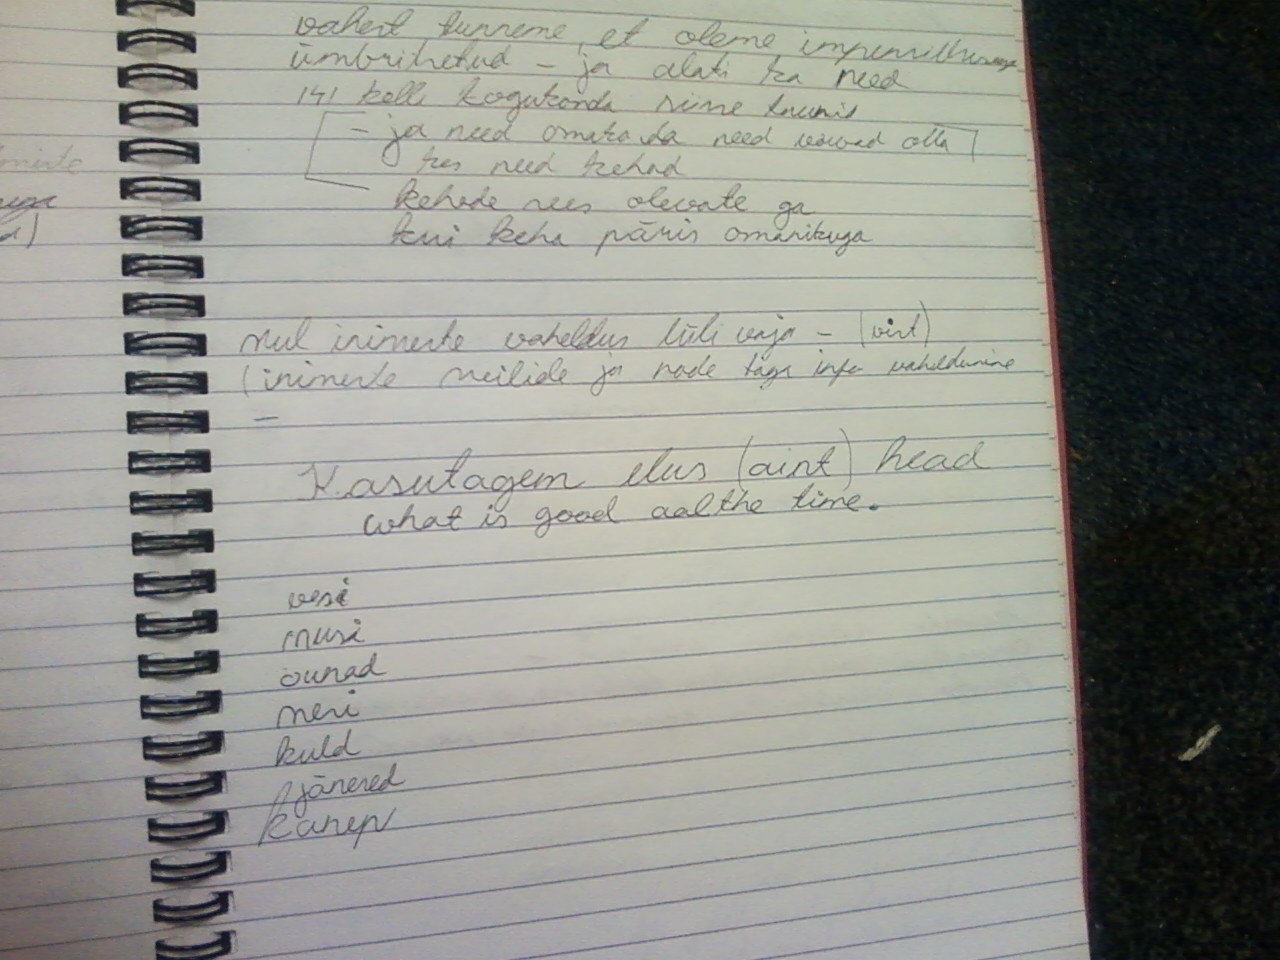 vahest tunneme et oleme
ümbritsetud - ja alati ka need
141 kelle kogukonda siine
- ja need omata ka need võivad olla
kes need kehad
kehade sees olevate ga
kui keha päris omanikuga
mul inimeste vaheldus liili vaja - (vist)
(inimeste meilide ja nade taga info vaheldumine
-
Kasutagem elus (aint) head
what is good aalthe time.
vesi
musi
õunad
meri
kuld
jänesed
kanep